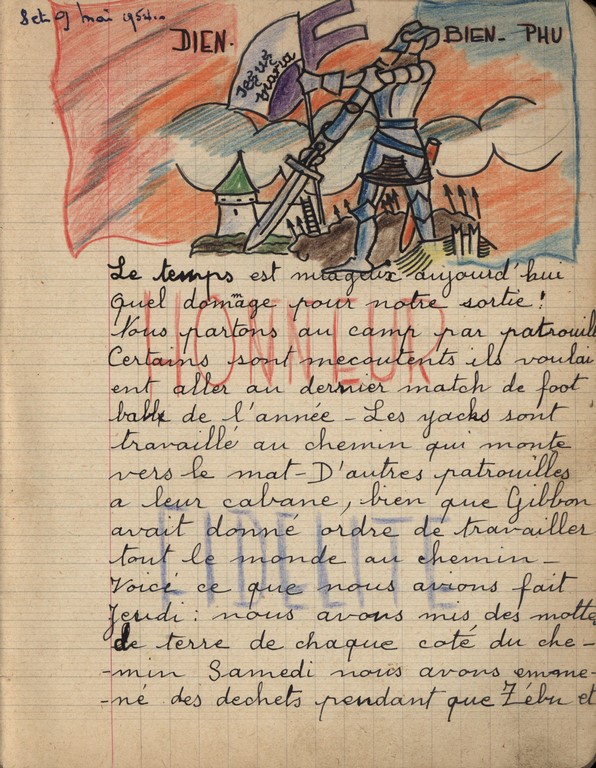 8 et 9 mai 1954..
DIEN-BIEN-PHU
Jesus
Maria
Le temps est nuageux aujourd'hui
quel dommage pour notre sortie!
Nous partons au camp par patrouill
Certains sont mecoutents ils voulai
ent aller au dernier match de foot
ball de l'année - Les yacks sont
travaillé au chemin qui monte
vers le mat - D'autres patrouilles
a leur cabane, bien que Gibbon
avait donné ordre de travailler
tout le monde au chemin -
Voici ce que nous avions fait
Jeudi : nous avons mis des motte
de terre de chaque coté du che-
-min Samedi nous avons emme-
-né des dechets pendant que Zébu et
HONNEUR
FIDELITE